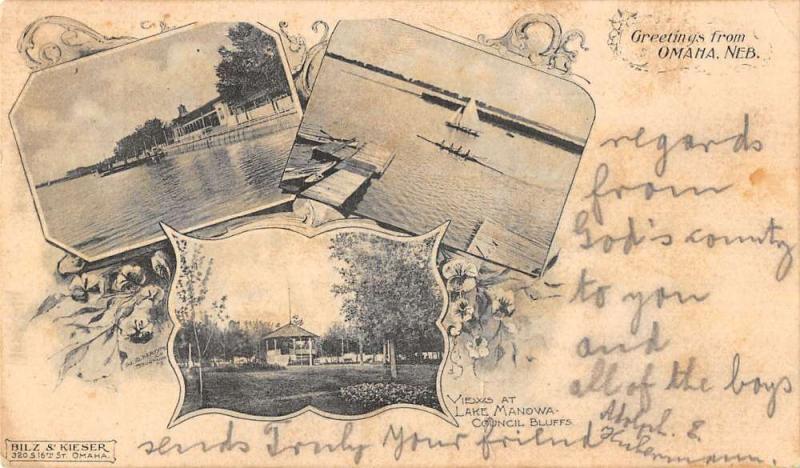 Greetings from
OMAHA, NEB.
regards
from
God's county
to you
and
all of the boys
VIEWS AT
LAKE MANOWA-
COUNCIL BLUFFS
BILZ & KIESER
320 S. 16TH ST. OMAHA.
sends Truly Your friend
Adolph. E.